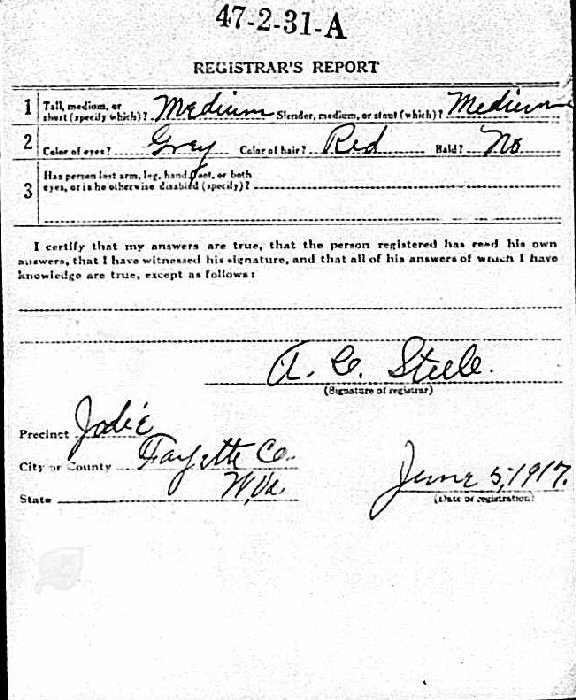 47-2-31-A
REGISTRAR'S REPORT
1 Tall, medium, or
short (specify which)? Medium Slender, medium, or stout (which)? Medium
2 Color of eyes? Grey Color of hair? Red Bald? No
3 Has person lost arm, leg, hand, foot, or both
eyes, or is he otherwise disabled (specify)?
I certify that my answers are true, that the person registered has read his own
answers, that I have witnessed his signature, and that all of his answers of which I have
knowledge are true, except as follows:
A. C. Steele.
(Signature of registrar)
Precinct Jodie
City or County Fayette Co.
State W, Va. June 5, 1917.
(Date of registration)